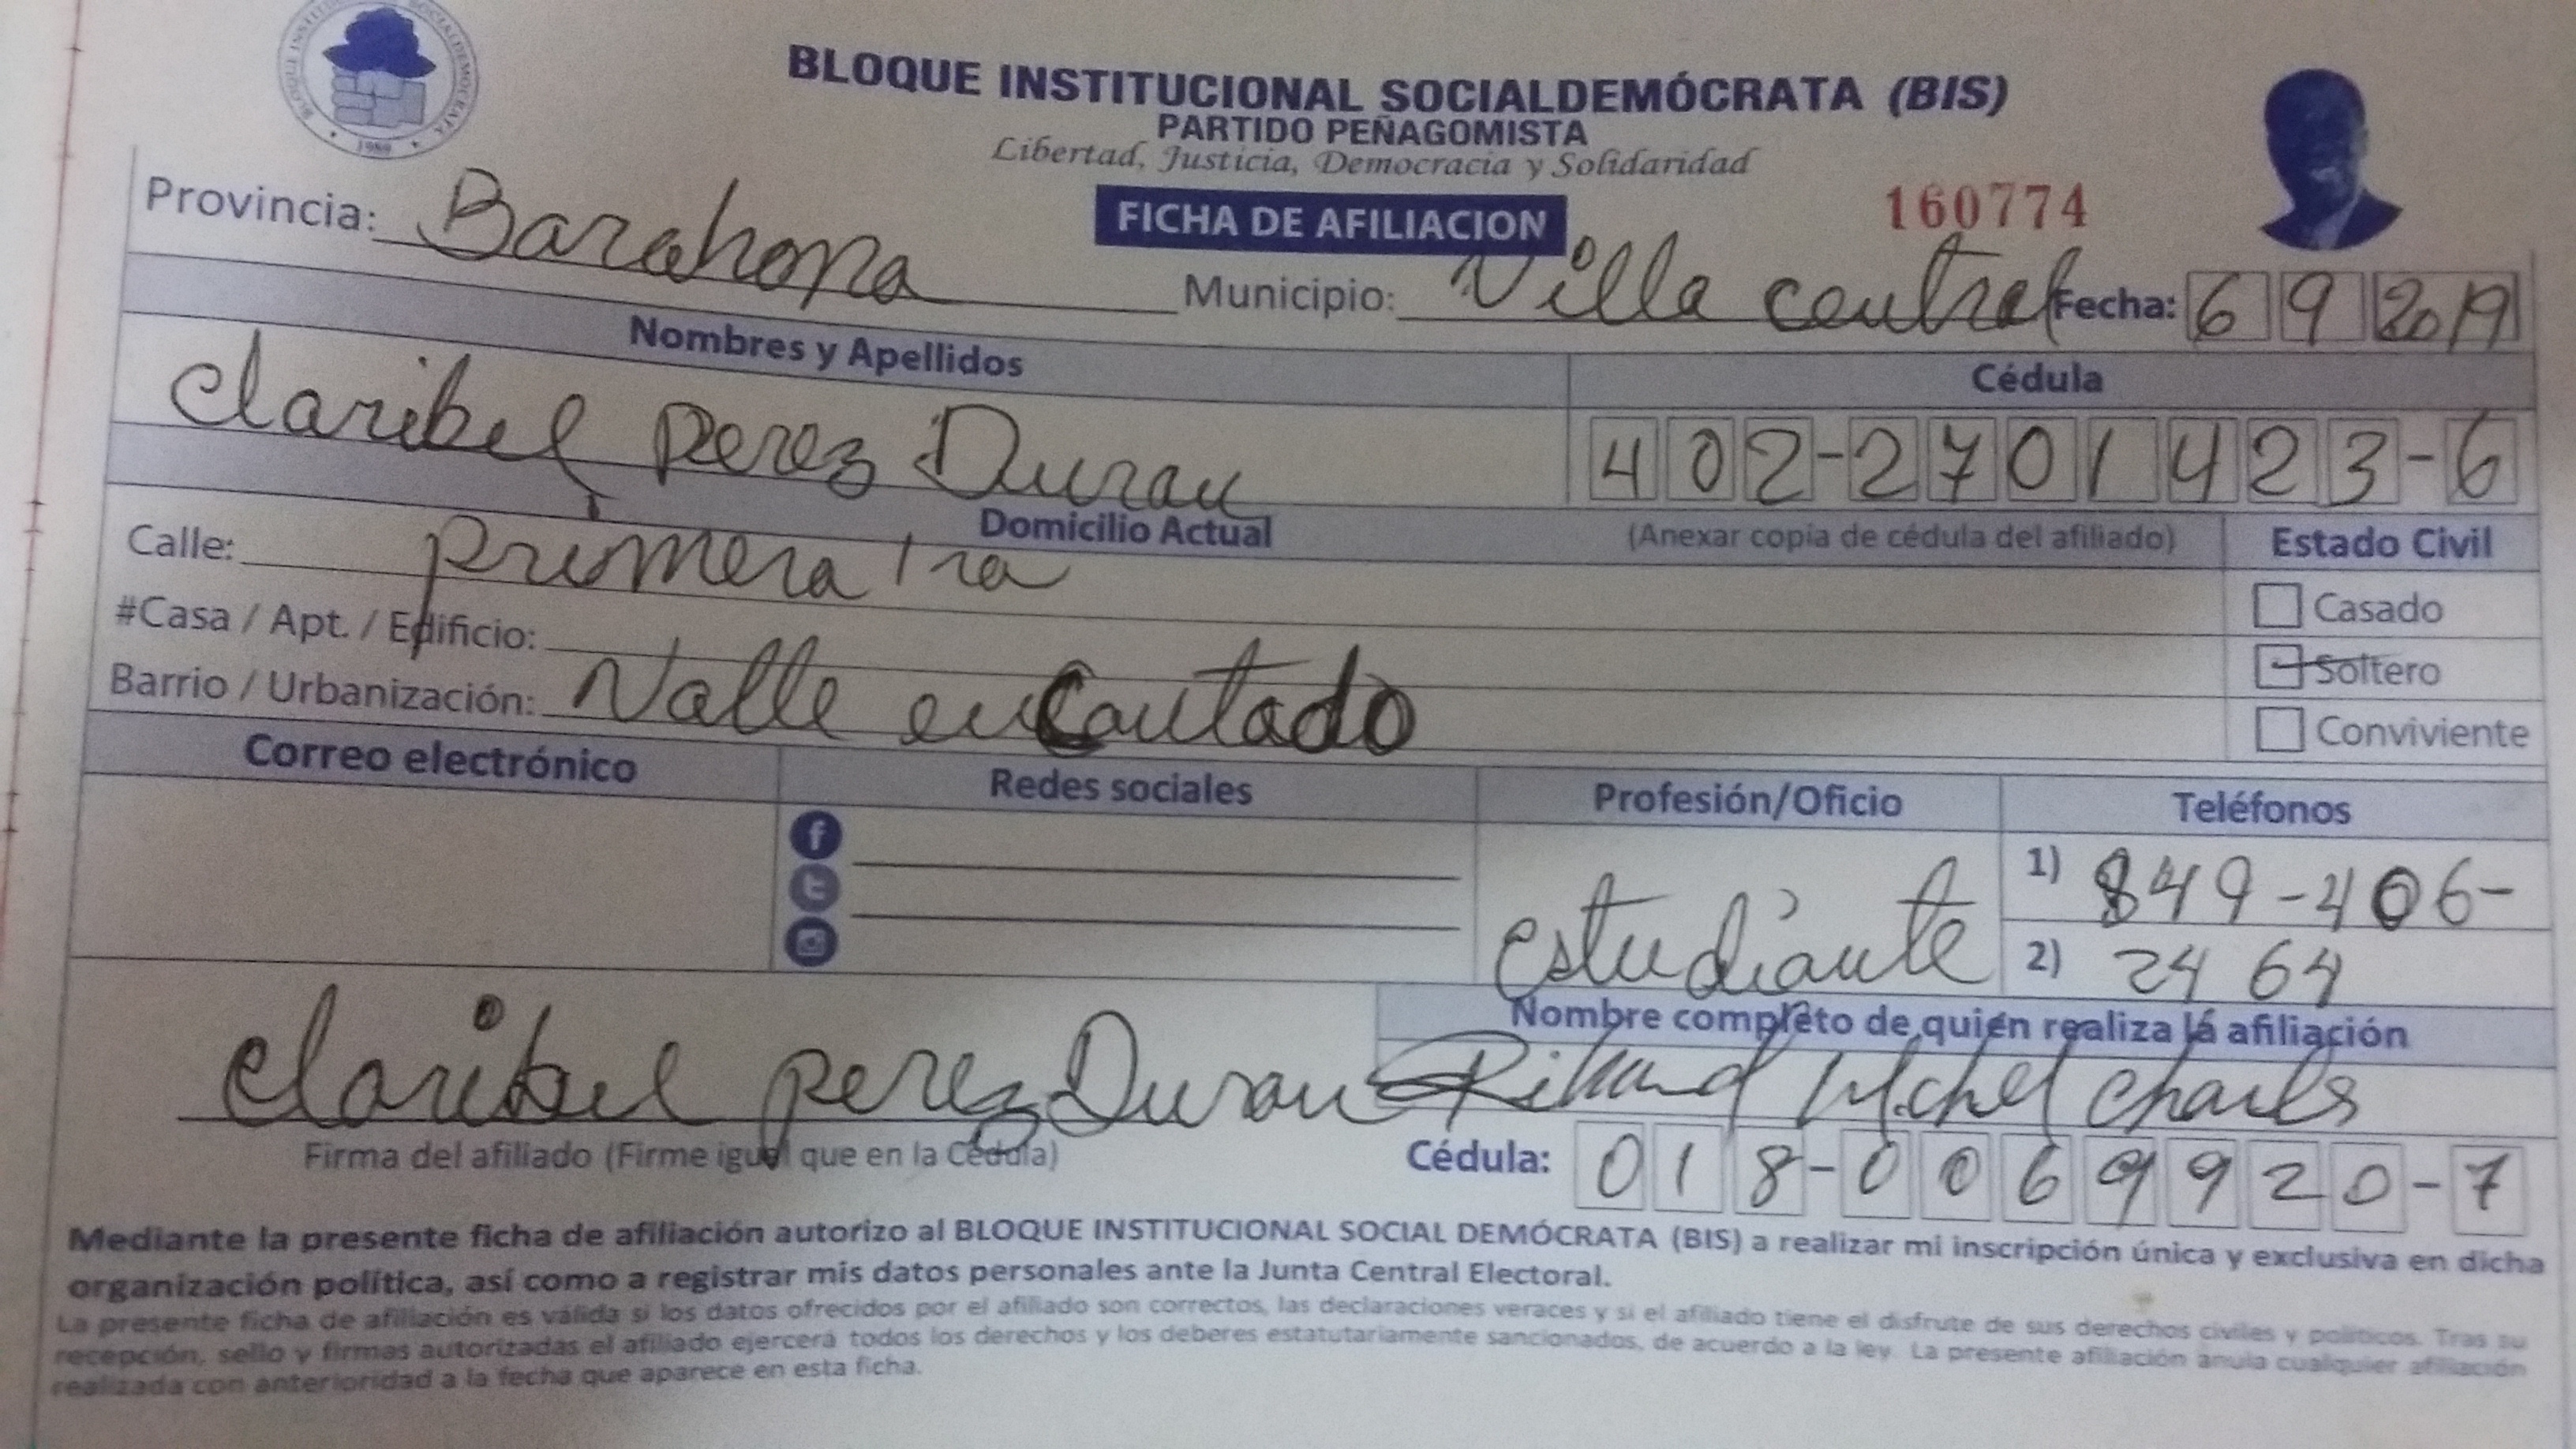 BLOQUE INSTITUCIONAL SOCIALDEMÓCRATA (BIS)
PARTIDO PEÑAGOMISTA
Libertad, Justicia, Democracia y Solidaridad
FICHA DE AFILIACION
160774
Provincia: Barahona
Municipio: Villa central
Fecha: 6 9 2019
Nombres y Apellidos
Cédula
Claribel Perez Duran
402-2701423-6
Domicilio Actual
(Anexar copia de cédula del afiliado)
Estado Civil
Calle: primera 1ra
Casado
#Casa / Apt. / Edificio:
Soltero
Barrio / Urbanización: Valle encantado
Conviviente
Correo electrónico
Redes sociales
Profesión/Oficio
Teléfonos
estudiante
1) 849-406-
2) 2464
Nombre completo de quién realiza la afiliación
Claribel perez Duran
Michel Charles
Firma del afiliado (Firme igual que en la Cédula)
Cédula: 018-0069920-7
Mediante la presente ficha de afiliación autorizo al BLOQUE INSTITUCIONAL SOCIAL DEMÓCRATA (BIS) a realizar mi inscripción única y exclusiva en dicha
organización política, así como a registrar mis datos personales ante la Junta Central Electoral.
La presente ficha de afiliación es válida si los datos ofrecidos por el afiliado son correctos, las declaraciones veraces y si el afiliado tiene el disfrute de sus derechos civiles y políticos. Tras su
recepción, sello y firmas autorizadas el afiliado ejercerá todos los derechos y los deberes estatutariamente sancionados, de acuerdo a la ley. La presente afiliación anula cualquier afiliación
realizada con anterioridad a la fecha que aparece en esta ficha.